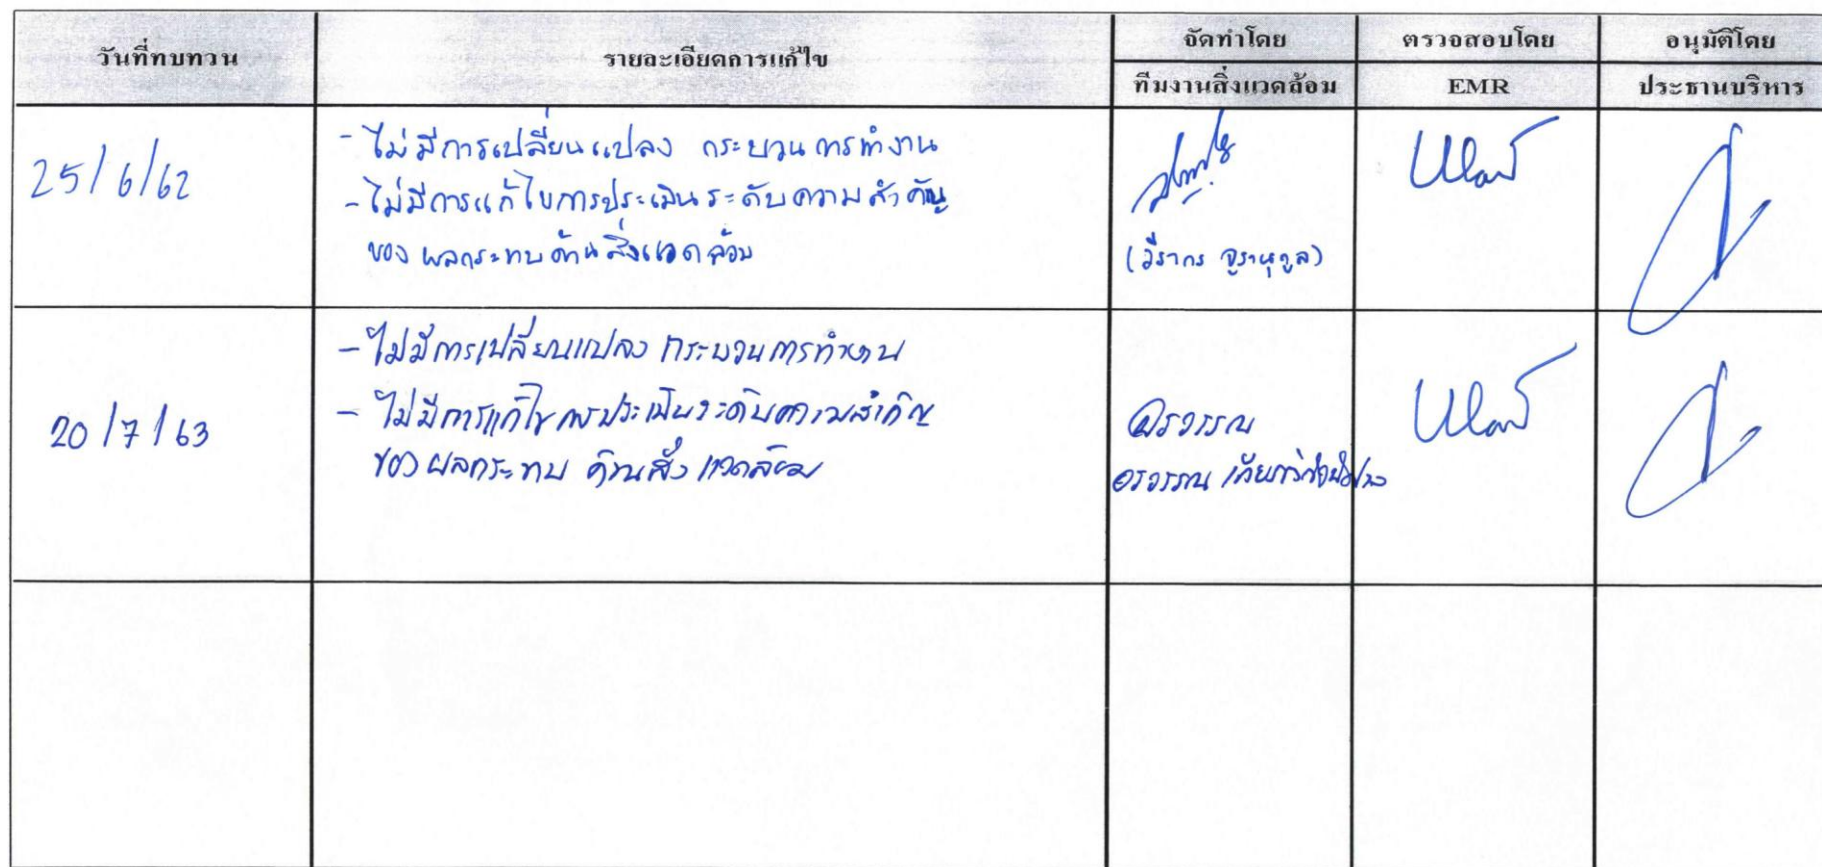 วันที่ทบทวน
รายละเอียดการแก้ไข
จัดทำโดย
ตรวจสอบโดย
อนุมัติโดย
ทีมงานสิ่งแวดล้อม
EMR
ประธานบริหาร
25/6/62
- ไม่มีการเปลี่ยนแปลง กระบวนการทำงาน
- ไม่มีการแก้ไขการประเมินระดับความสำคัญ
ของ ผลกระทบด้านสิ่งแวดล้อม
20/7/63
- ไม่มีการเปลี่ยนแปลง กระบวนการทำงาน
- ไม่มีการแก้ไข การประเมินระดับความสำคัญ
ของ ผลกระทบ ด้านสิ่งแวดล้อม
อรวรรณ
อรวรรณ